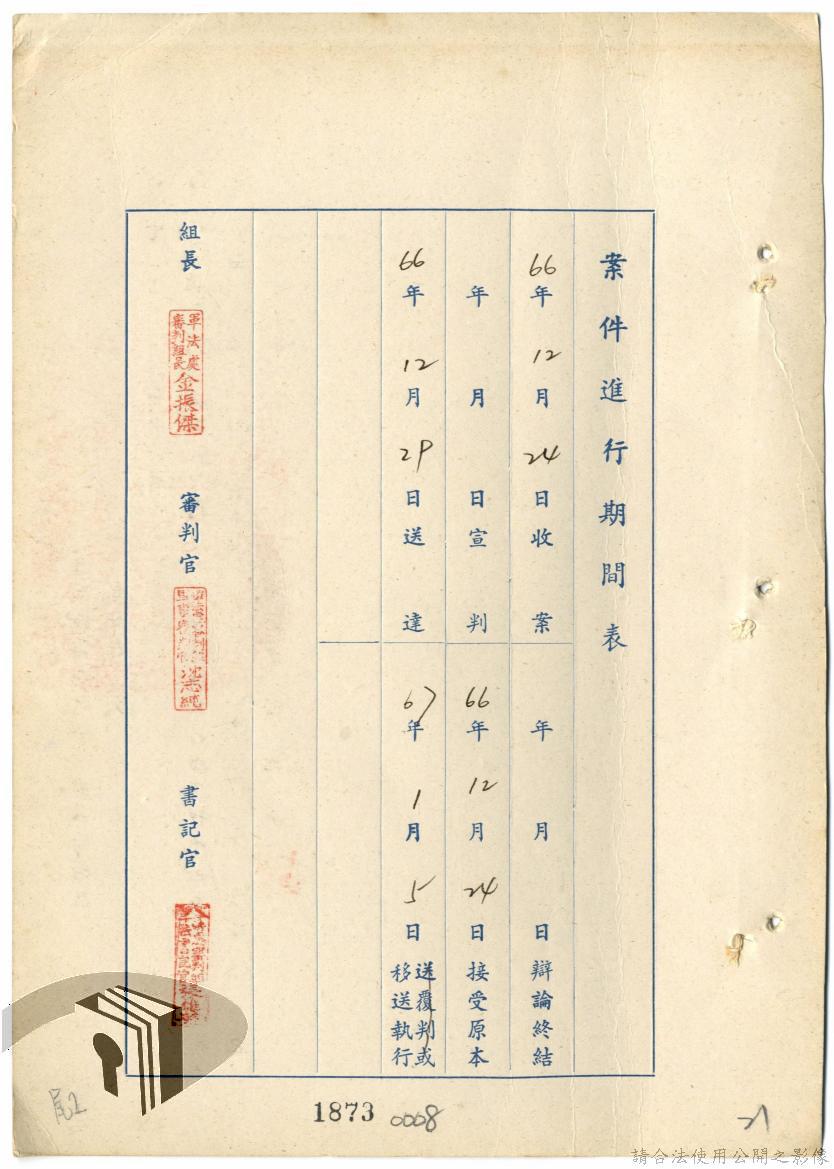 案件進行期間表
66年12月24日收案
年月日辯論終結
年月日宣判
66年12月24日接受原本
66年12月29日送達
67年1月5日送覆判或移送執行
組長
軍法處
審判組長
金振傑
審判官
沈志純
書記官
1873
0008
21
請合法使用公開之影像